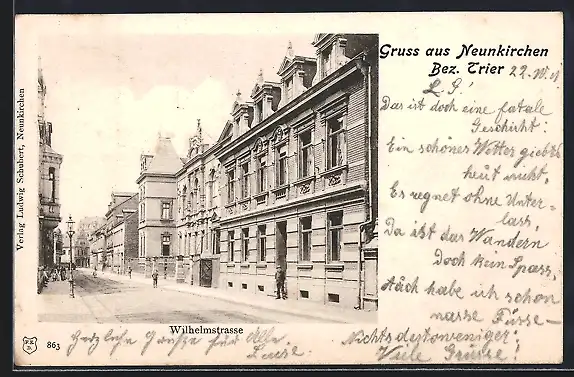 Gruss aus Neunkirchen
Bez. Trier
L. S!
Das ist doch eine fatale
Geschicht:
Ein schönes Wetter giebts
heut nicht,
Es regnet ohne Unter-
lass,
Da ist das Wandern
Doch kein Spass,
Auch habe ich schon
nasse Füsse –
Nichtsdestoweniger:
Viele Grüsse!
Verlag Ludwig Schubert, Neunkirchen
Wilhelmstrasse
863
Herzliche Grüsse für Alle
Luise